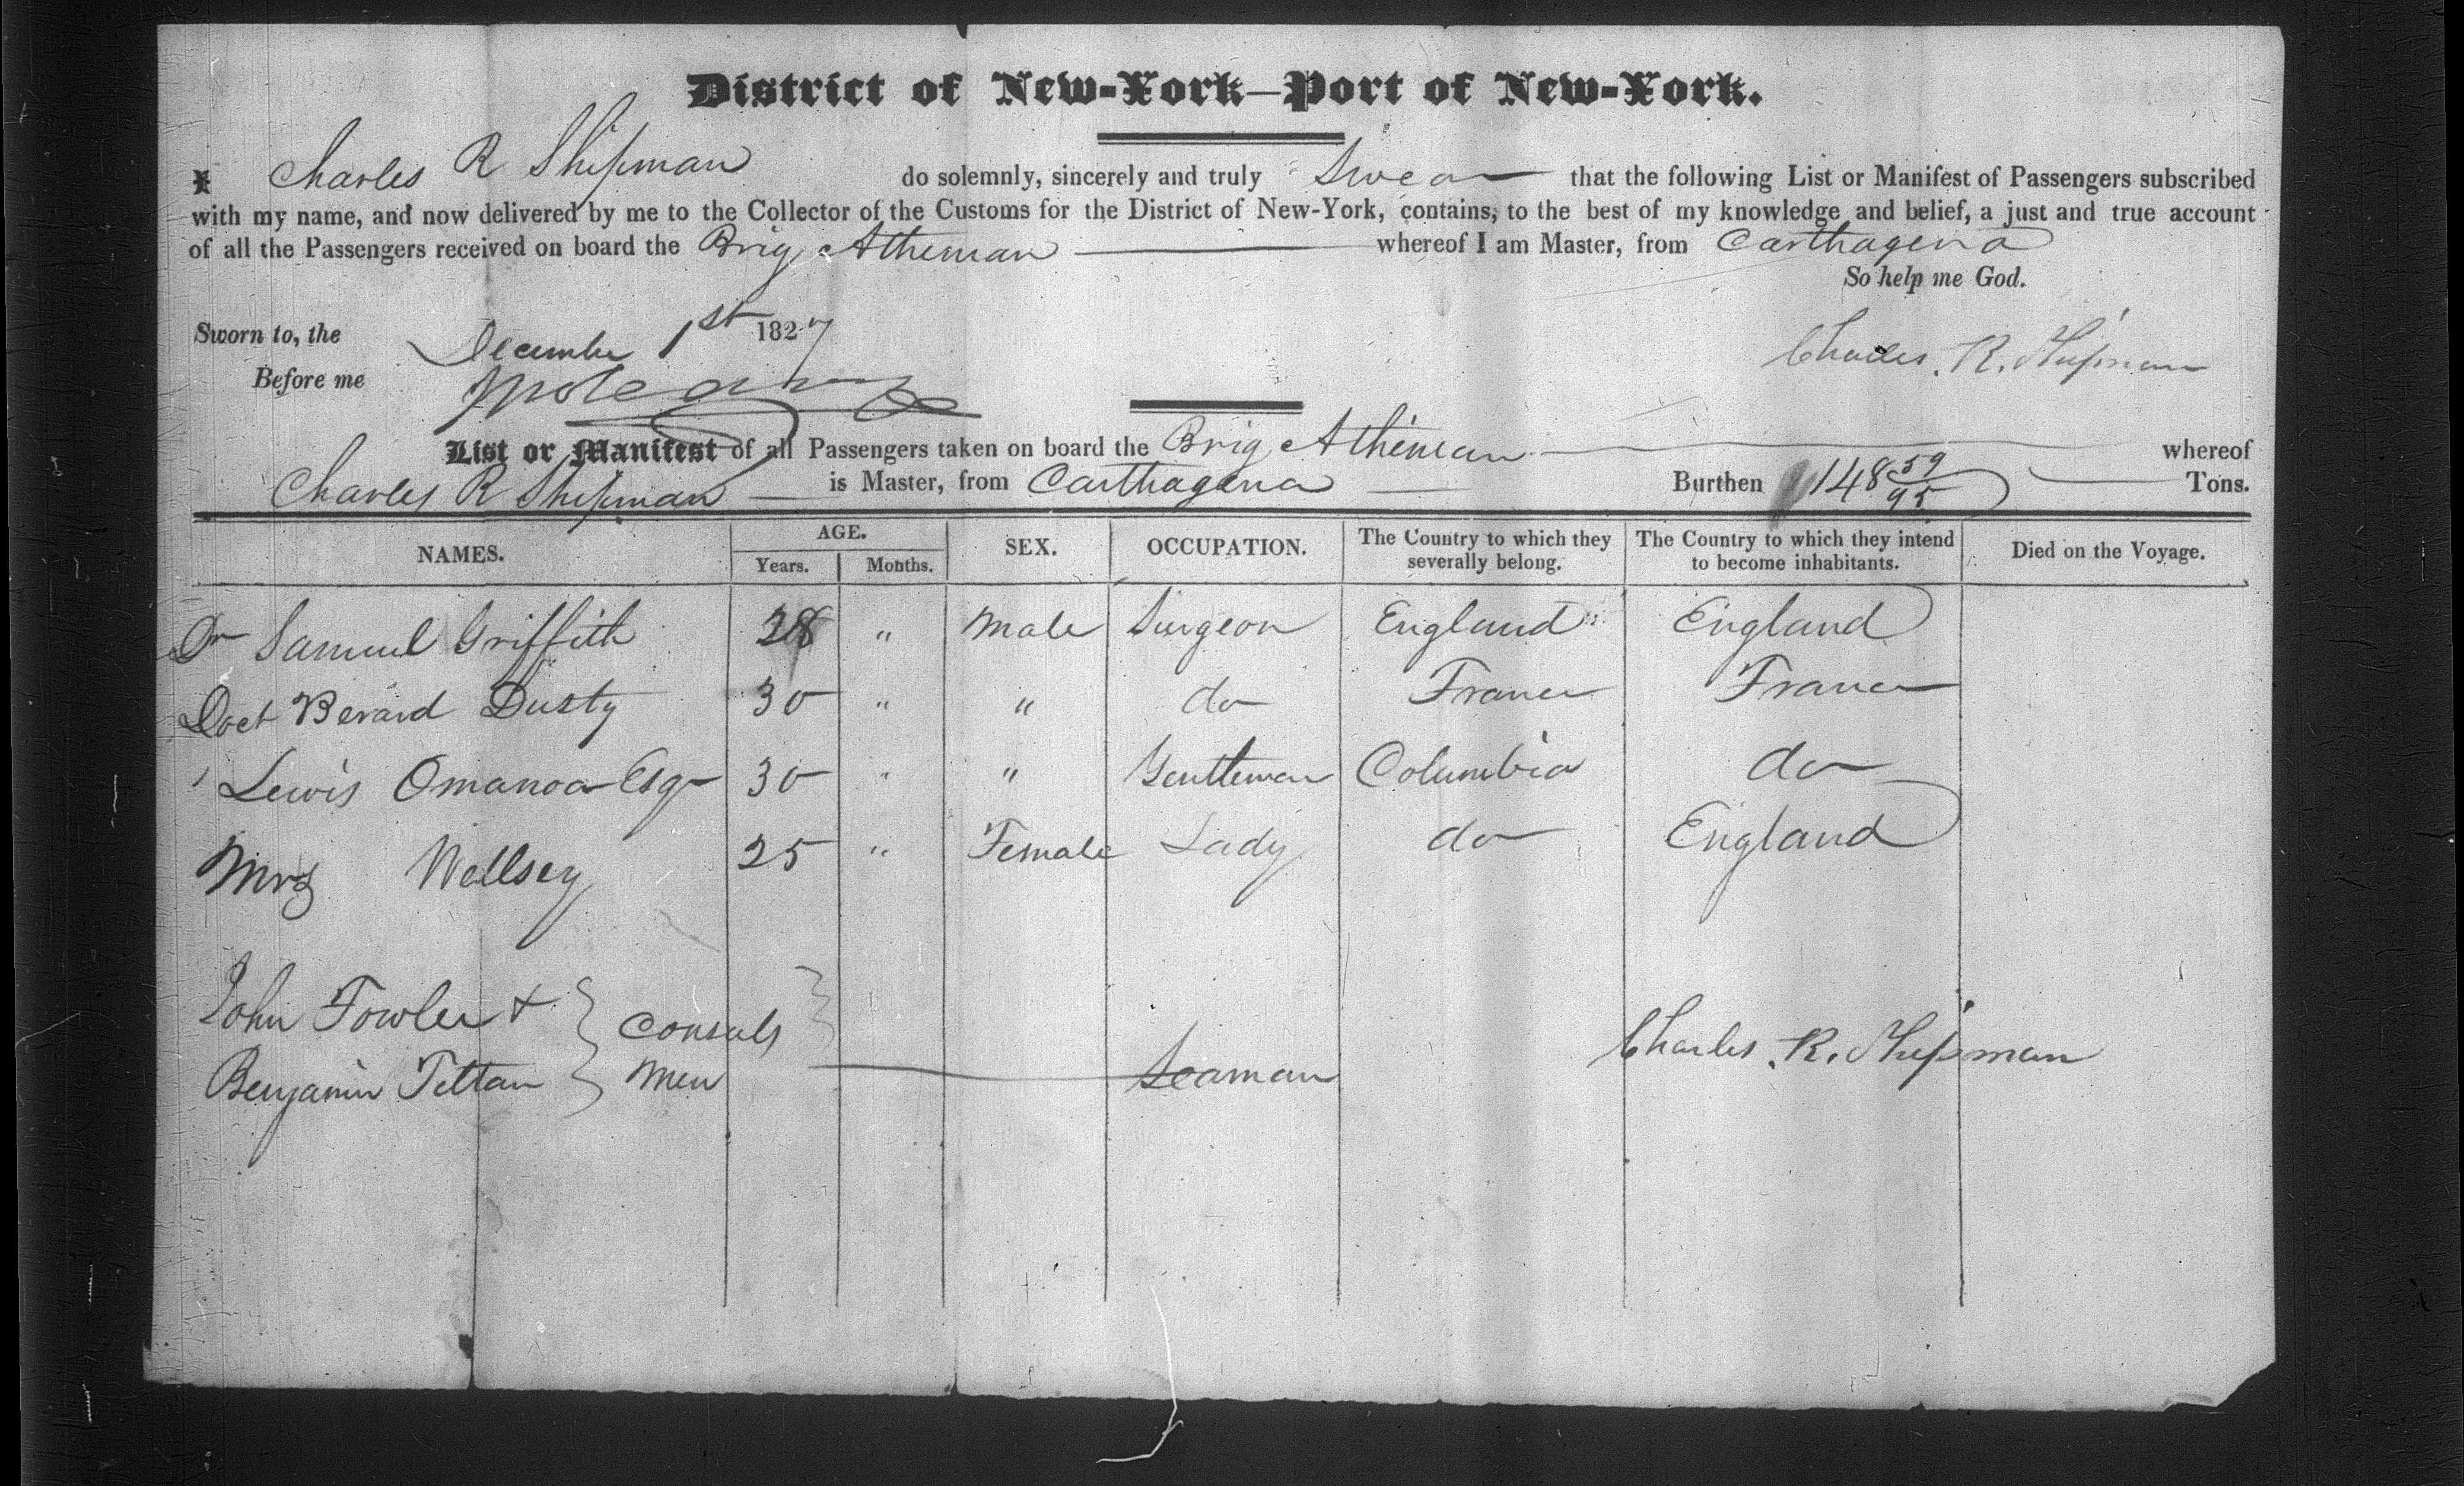 District of New-York—Port of New-York.
I Charles R Shipman do solemnly, sincerely and truly Swear that the following List or Manifest of Passengers subscribed
with my name, and now delivered by me to the Collector of the Customs for the District of New-York, contains, to the best of my knowledge and belief, a just and true account
of all the Passengers received on board the Brig Athenian whereof I am Master, from Carthagena
So help me God.
Sworn to, the December 1st 1827
Charles. R. Shipman
Before me
List or Manifest of all Passengers taken on board the Brig Athenean whereof
Charles R Shipman is Master, from Carthagena Burthen 148 59/95 Tons.
NAMES. AGE. Years. Months. SEX. OCCUPATION. The Country to which they severally belong. The Country to which they intend to become inhabitants. Died on the Voyage.
Dr Samuel Griffith 28 " Male Surgeon England England
Doct Berard Dusty 30 " " do France France
Lewis Omanoa Esqr 30 " " Gentleman Columbia do
Mrs Wellsey 25 " Female Lady do England
John Fowler + } Consuls
Benjamin Teltan } Men Seaman
Charles. R. Shipman